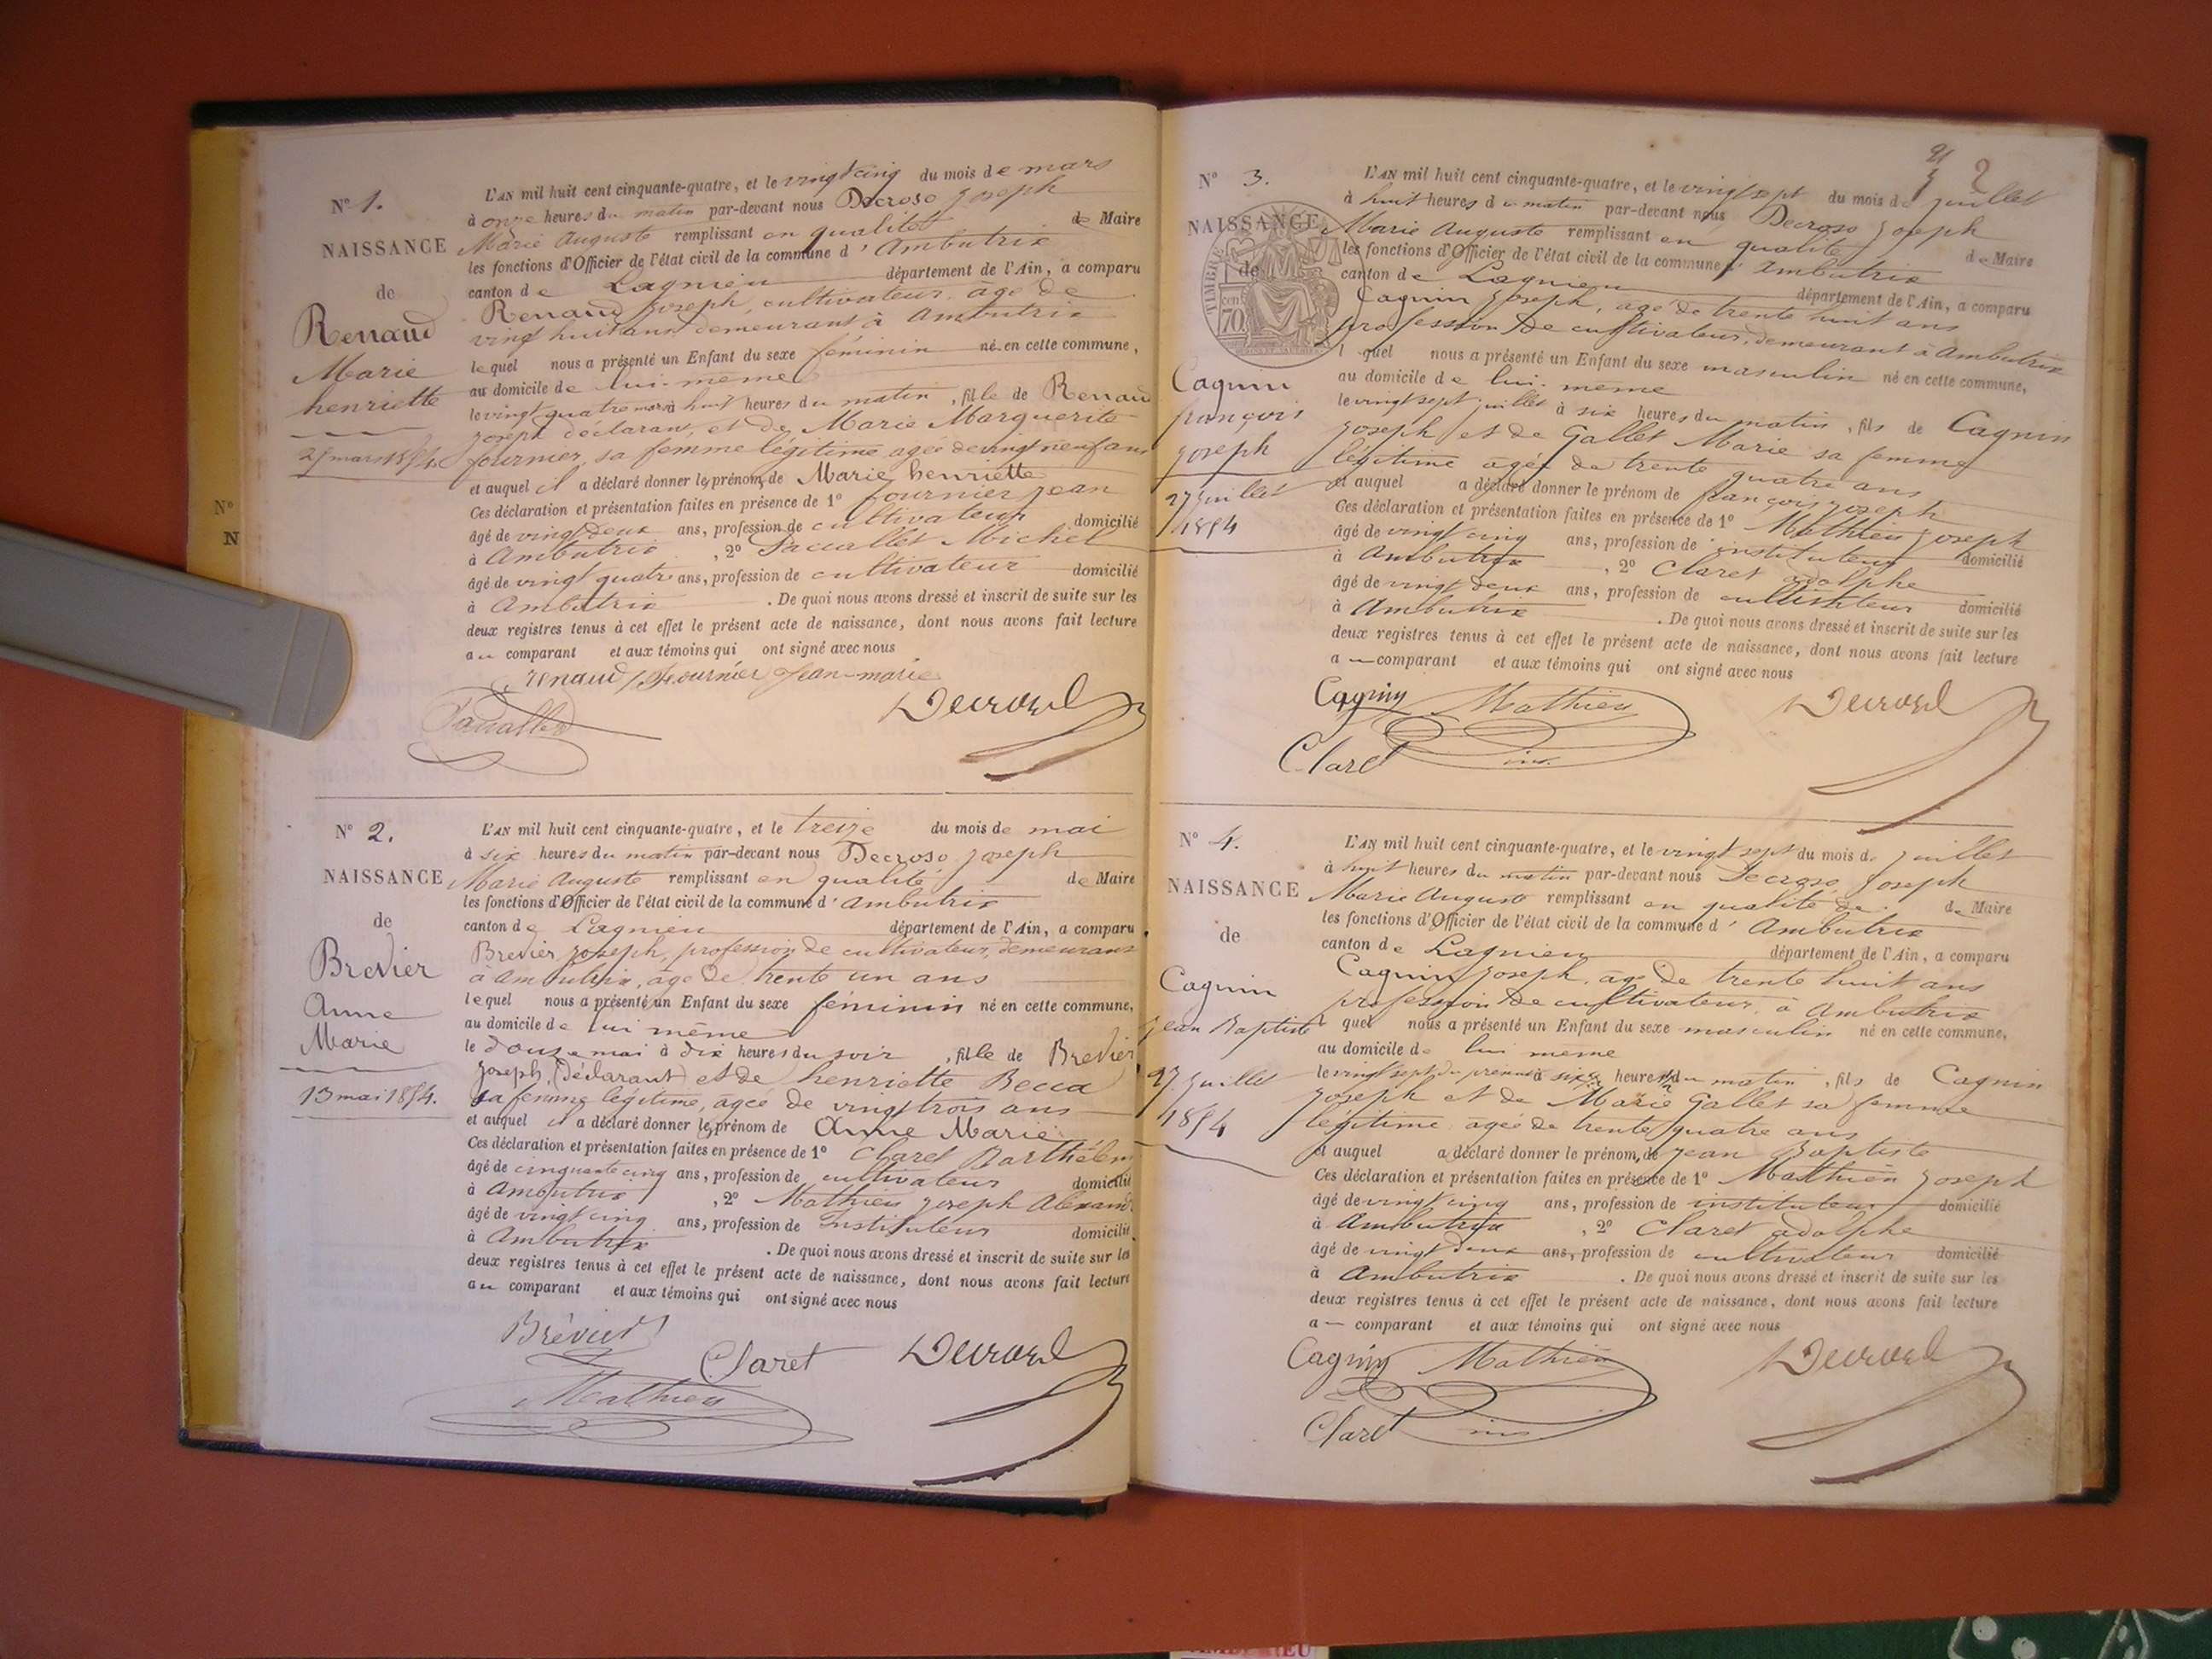 N° 1.
NAISSANCE
de
Renaud
Marie
henriette
25 mars 1854.
L'AN mil huit cent cinquante-quatre, et le vingt cinq du mois de mars
à onze heures du matin par-devant nous Decroso Joseph
Marie Auguste remplissant en qualité de Maire
les fonctions d'Officier de l'état civil de la commune d'Ambutrix
canton de Lagnieu département de l'Ain, a comparu
Renaud Joseph, cultivateur, âgé de
vingt huit ans demeurant à Ambutrix
lequel nous a présenté un Enfant du sexe féminin né en cette commune,
au domicile de lui-même
le vingt quatre mars à huit heures du matin, fille de Renaud
Joseph déclarant, et de Marie Marguerite
fournier sa femme légitime agée de vingt neuf ans
et auquel il a déclaré donner les prénoms de Marie henriette
Ces déclaration et présentation faites en présence de 1° fournier Jean
âgé de vingt deux ans, profession de cultivateur domicilié
à Ambutrix, 2° Michel
âgé de vingt quatre ans, profession de cultivateur domicilié
à Ambutrix. De quoi nous avons dressé et inscrit de suite sur les
deux registres tenus à cet effet le présent acte de naissance, dont nous avons fait lecture
au comparant et aux témoins qui ont signé avec nous
renaud Fournier Jean-marie
Decroso
N° 2.
NAISSANCE
de
Brevier
Anne
Marie
13 mai 1854.
L'AN mil huit cent cinquante-quatre, et le treize du mois de mai
à six heures du matin par-devant nous Decroso Joseph
Marie Auguste remplissant en qualité de Maire
les fonctions d'Officier de l'état civil de la commune d'Ambutrix
canton de Lagnieu département de l'Ain, a comparu
Brevier Joseph, profession de cultivateur, demeurant
à Ambutrix, âgé de trente un ans
lequel nous a présenté un Enfant du sexe féminin né en cette commune,
au domicile de lui même
le douze mai à dix heures du soir, fille de Brevier
Joseph, (déclarant) et de henriette Becca
sa femme légitime, âgée de vingt trois ans
et auquel il a déclaré donner les prénom de Anne Marie
Ces déclaration et présentation faites en présence de 1° Claret Barthélem
âgé de cinquante cinq ans, profession de cultivateur domicilié
à Ambutrix, 2° Mathieu Joseph Alexand
âgé de vingt cinq ans, profession de Instituteur domicilié
à Ambutrix. De quoi nous avons dressé et inscrit de suite sur les
deux registres tenus à cet effet le présent acte de naissance, dont nous avons fait lecture
au comparant et aux témoins qui ont signé avec nous
Brévier
Claret Decroso
Mathieu
2
N° 3.
NAISSANCE
de
TIMBRE
70
Cagnin
françois
Joseph
27 Juillet
1854
L'AN mil huit cent cinquante-quatre, et le vingt sept du mois de Juillet
à huit heures du matin par-devant nous Decroso Joseph
Marie Auguste remplissant en qualité de Maire
les fonctions d'Officier de l'état civil de la commune d'Ambutrix
canton de Lagnieu département de l'Ain, a comparu
Cagnin Joseph, âgé de trente huit ans
profession de cultivateur, demeurant à Ambutrix
l quel nous a présenté un Enfant du sexe masculin né en cette commune,
au domicile de lui-même
le vingt sept juillet à six heures du matin, fils de Cagnin
Joseph et de Gallet Marie sa femme
légitime agée de trente quatre ans
et auquel a déclaré donner le prénom de françois Joseph
Ces déclaration et présentation faites en présence de 1° Mathieu Joseph
âgé de vingt cinq ans, profession de instituteur domicilié
à Ambutrix, 2° Claret adolphe
âgé de vingt deux ans, profession de cultivateur domicilié
à Ambutrix. De quoi nous avons dressé et inscrit de suite sur les
deux registres tenus à cet effet le présent acte de naissance, dont nous avons fait lecture
au comparant et aux témoins qui ont signé avec nous
Cagnin Mathieu Decroso
Claret ins.
N° 4.
NAISSANCE
de
Cagnin
Jean Baptiste
27 Juillet
1854
L'AN mil huit cent cinquante-quatre, et le vingt sept du mois de Juillet
à huit heures du matin par-devant nous Decroso Joseph
Marie Auguste remplissant en qualité de de Maire
les fonctions d'Officier de l'état civil de la commune d'Ambutrix
canton de Lagnieu département de l'Ain, a comparu
Cagnin Joseph, âgé de trente huit ans
profession de cultivateur, à Ambutrix
l quel nous a présenté un Enfant du sexe masculin né en cette commune,
au domicile de lui même
le vingt sept du présent à six heures du matin, fils de Cagnin
Joseph et de Marie Gallet sa femme
légitime agée de trente quatre ans
et auquel a déclaré donner le prénom de Jean Baptiste
Ces déclaration et présentation faites en présence de 1° Matthieu Joseph
âgé de vingt cinq ans, profession de instituteur domicilié
à Ambutrix, 2° Claret adolphe
âgé de vingt deux ans, profession de cultivateur domicilié
à Ambutrix. De quoi nous avons dressé et inscrit de suite sur les
deux registres tenus à cet effet le présent acte de naissance, dont nous avons fait lecture
au comparant et aux témoins qui ont signé avec nous
Cagnin Mathieu Decroso
Claret ins